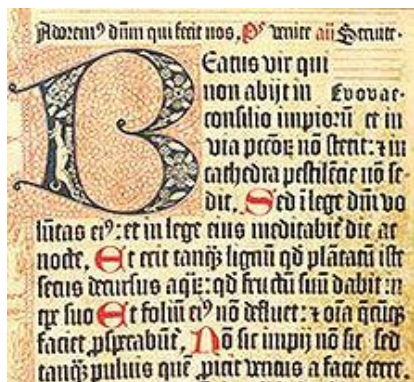 Adorem⁹ dũm qui fecit nos, Pˢ venite añ Servite.
Beatus vir qui
non abijt in Evovae.
consilio impiorũ et in
via pccõꝝ nõ stetit: ⁊ in
cathedra pestilẽcie nõ se⸗
dit, Sed ĩ lege dñi vo
lũtas ei⁹: et in lege eius meditabit̃ die ac
nocte, Et erit tanqꝫ lignũ qđ plãtatũ iste
secus decursus aqꝝ: qđ fructũ suũ dabit: ĩ
tꝑe suo Et foliũ ei⁹ nõ defluet: ⁊ oĩa q̃cũqꝫ
faciet ꝓsperabũt̃, Nõ sic impij nõ sic sed
tanqꝫ puluis quẽ ꝓicit ventus a facie terre.